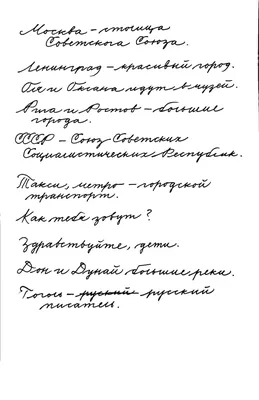 Москва – столица
Советского Союза.
Ленинград – красивый город.
Оля и Оксана идут в музей.
Рига и Ростов – большие
города.
СССР – Союз Советских
Социалистических Республик.
Такси, метро – городской
транспорт.
Как тебя зовут?
Здравствуйте, дети.
Дон и Дунай большие реки.
Гоголь – русский русский
писатель.